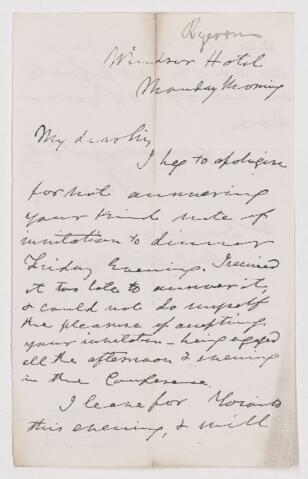 Ryerson
Windsor Hotel
Monday Morning
My dear Sir,
I beg to apologise
for not answering
your kind note of
invitation to dinner
Friday Evening. I received
it too late to answer it,
& could not do myself
the pleasure of accepting
your invitation – being engaged
all the afternoon & evening
in the Conference.
I leave for Toronto
this evening, & will